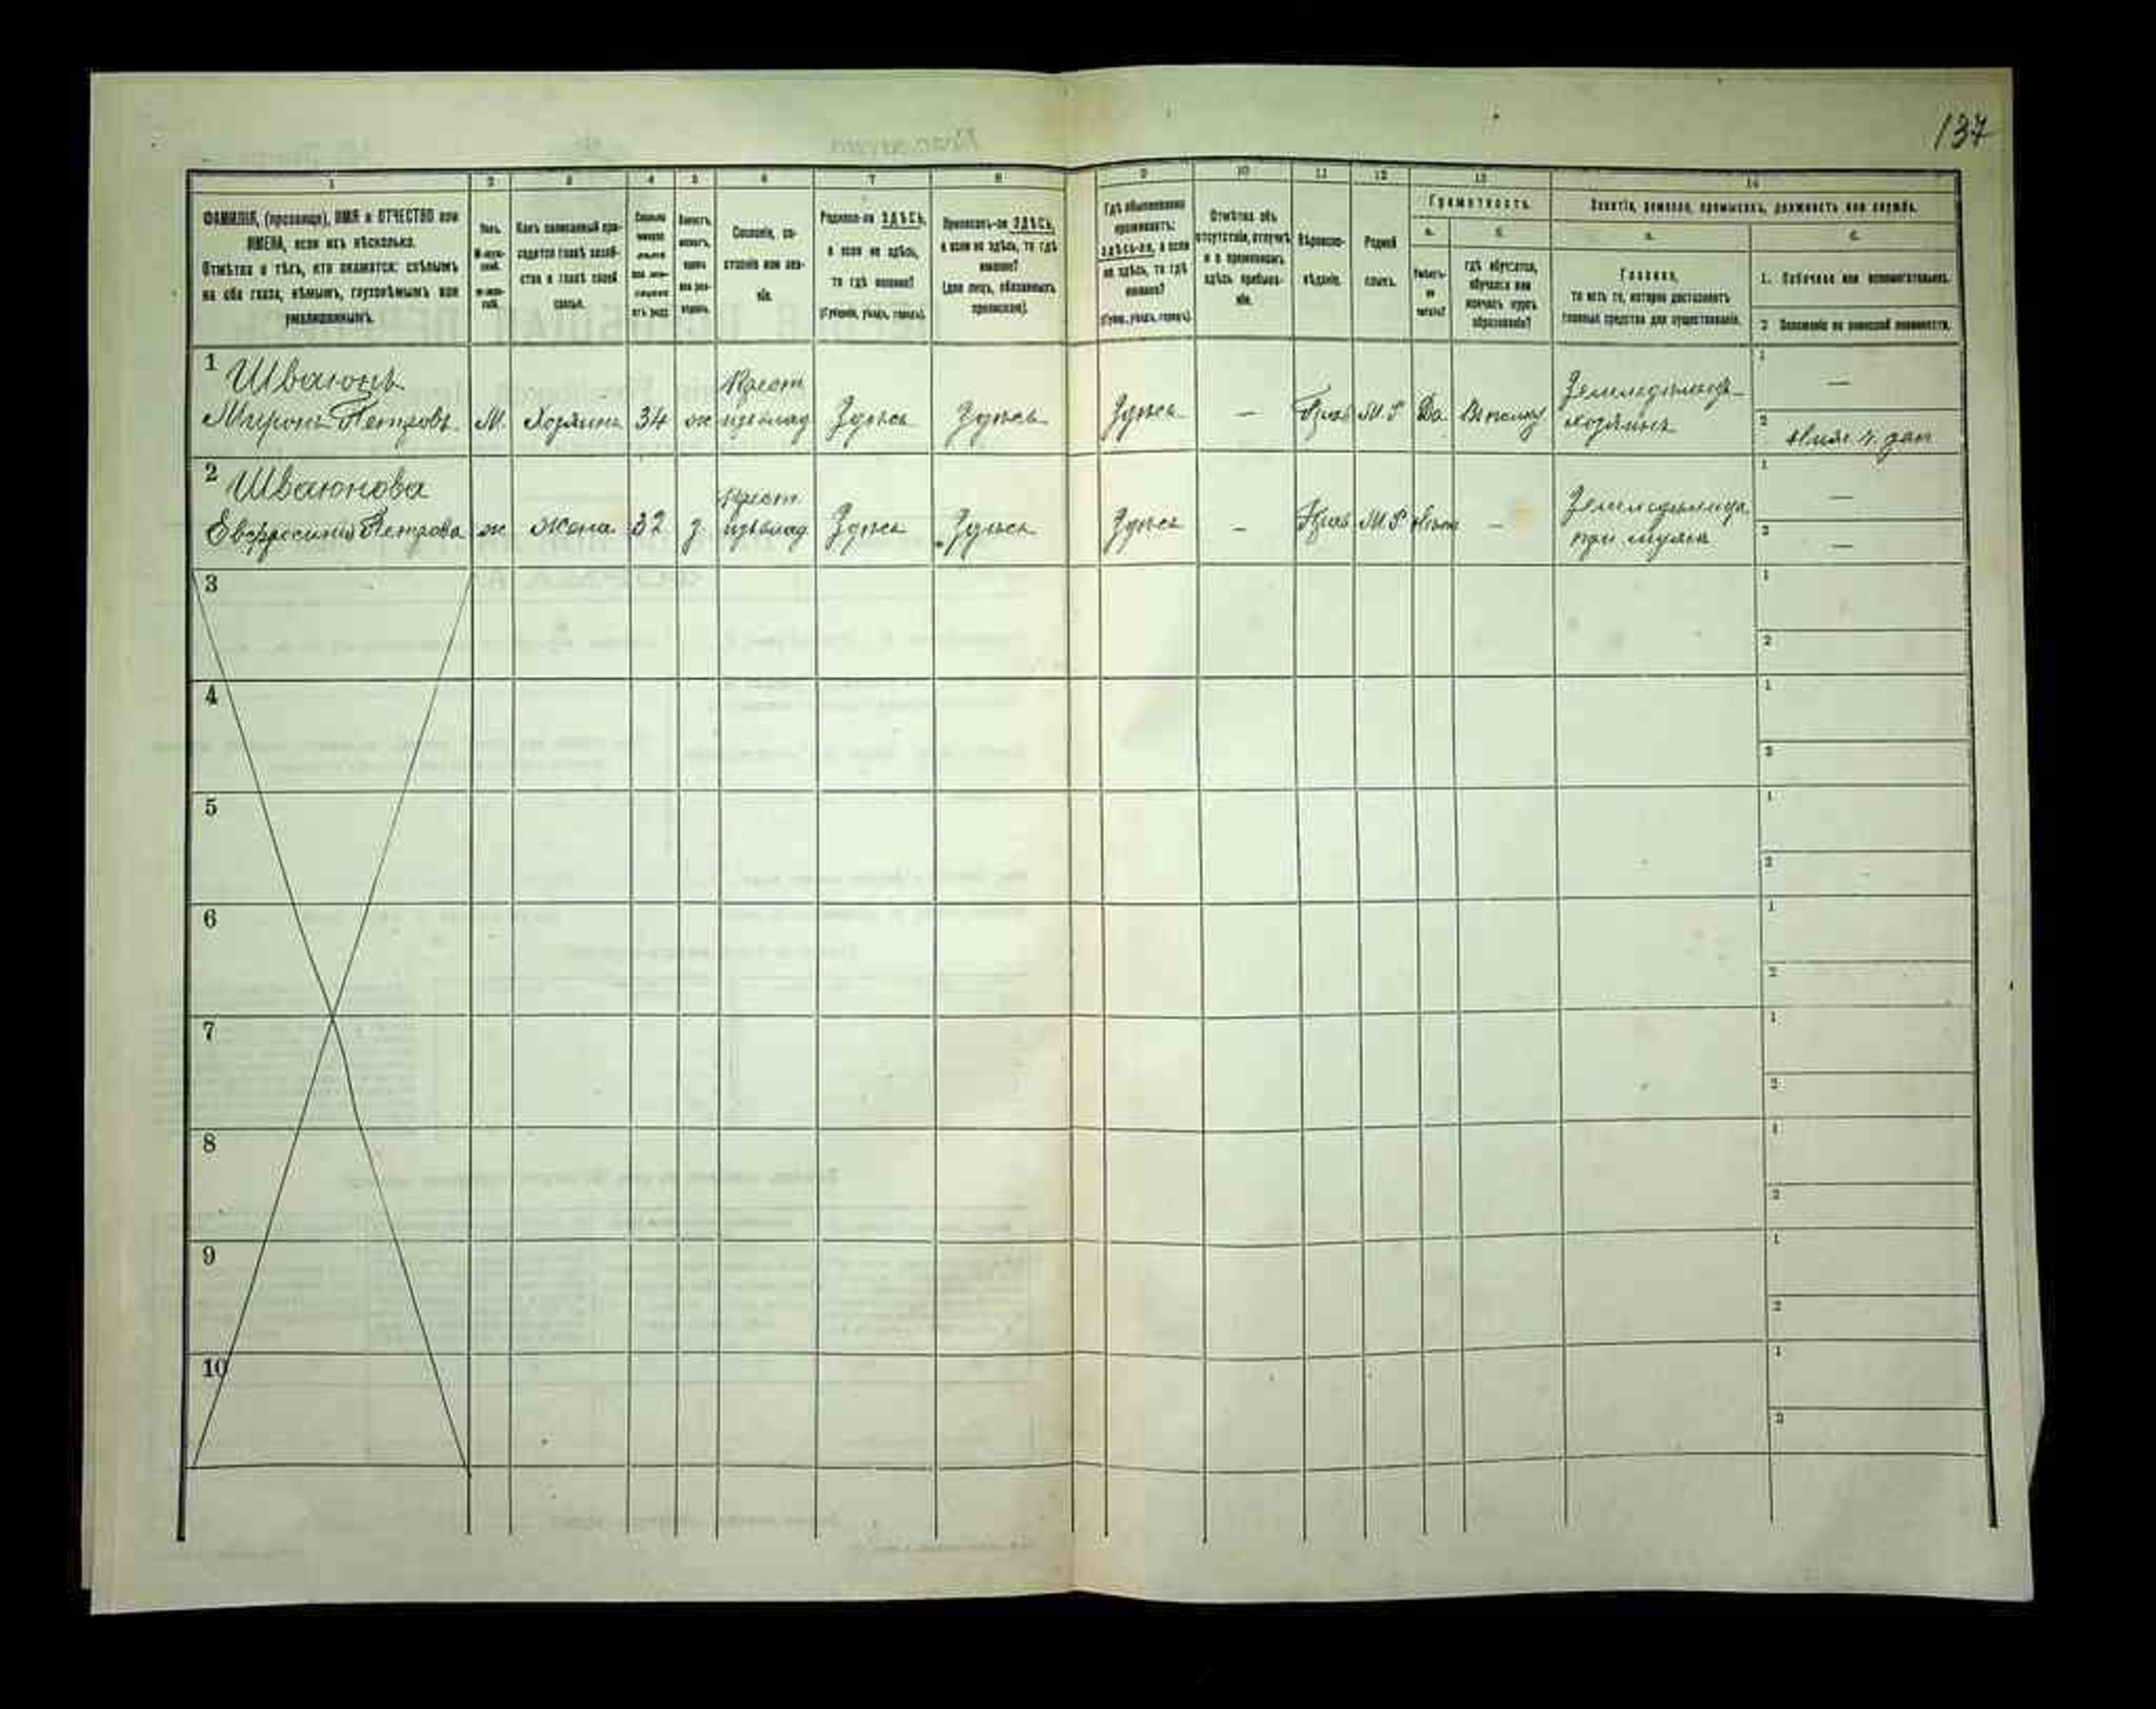 137
1 2 3 4 5 6 7 8 9 10 11 12 13 14
ФАМИЛІЯ, (прозвище), ИМЯ и ОТЧЕСТВО или
ИМЕНА, если ихъ нѣсколько.
Отмѣтка о тѣхъ, кто окажется: слѣпымъ
на оба глаза, нѣмымъ, глухонѣмымъ или
умалишеннымъ.
Полъ.
Какъ записанный при-
ходится главѣ хозяй-
ства и главѣ своей
семьи.
Сословіе, со-
стояніе или зва-
ніе.
Родился-ли ЗДѢСЬ,
а если не здѣсь,
то гдѣ именно?
(Губернія, уѣздъ, городъ).
Приписанъ-ли ЗДѢСЬ,
а если не здѣсь, то гдѣ
именно?
(для лицъ, обязанныхъ
припискою).
Гдѣ обыкновенно
проживаетъ:
здѣсь-ли, а если
не здѣсь, то гдѣ
именно?
(Губ., уѣздъ, городъ).
Отмѣтка объ
отсутствіи, отлучкѣ
и о временномъ
здѣсь пребыва-
ніи.
Вѣроиспо-
вѣданіе.
Родной
языкъ.
Грамотность.
а. б.
Умѣетъ-
ли
читать?
гдѣ обучается,
обучался или
кончилъ курсъ
образованія?
Занятіе, ремесло, промыселъ, должность или служба.
а. б.
Главное,
то есть то, которое доставляетъ
главныя средства для существованія.
1. Побочное или вспомогательное.
2 Положеніе по воинской повинности.
1 Шваюнъ
Миронъ Петровъ М. Хозяинъ 34 ж Крест. изъ влад Здѣсь Здѣсь Здѣсь — Прав М.Р Да В полку Земледѣлецъ хозяинъ
1 —
2
2 Шваюнова
Евфросинія Петрова ж Жена 32 з Крест. изъ влад Здѣсь Здѣсь Здѣсь — Прав М.Р Нѣтъ — Земледѣлица при мужѣ
1 —
2 —
3 1
2
4 1
2
5 1
2
6 1
2
7 1
2
8 1
2
9 1
2
10 1
2